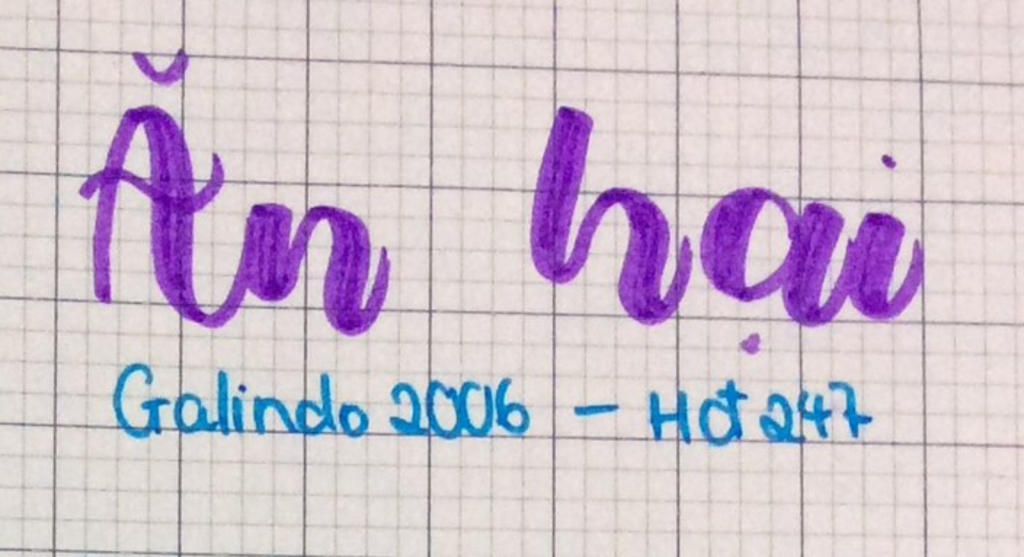 Ăn hại
Galindo 2006 - Hot 247